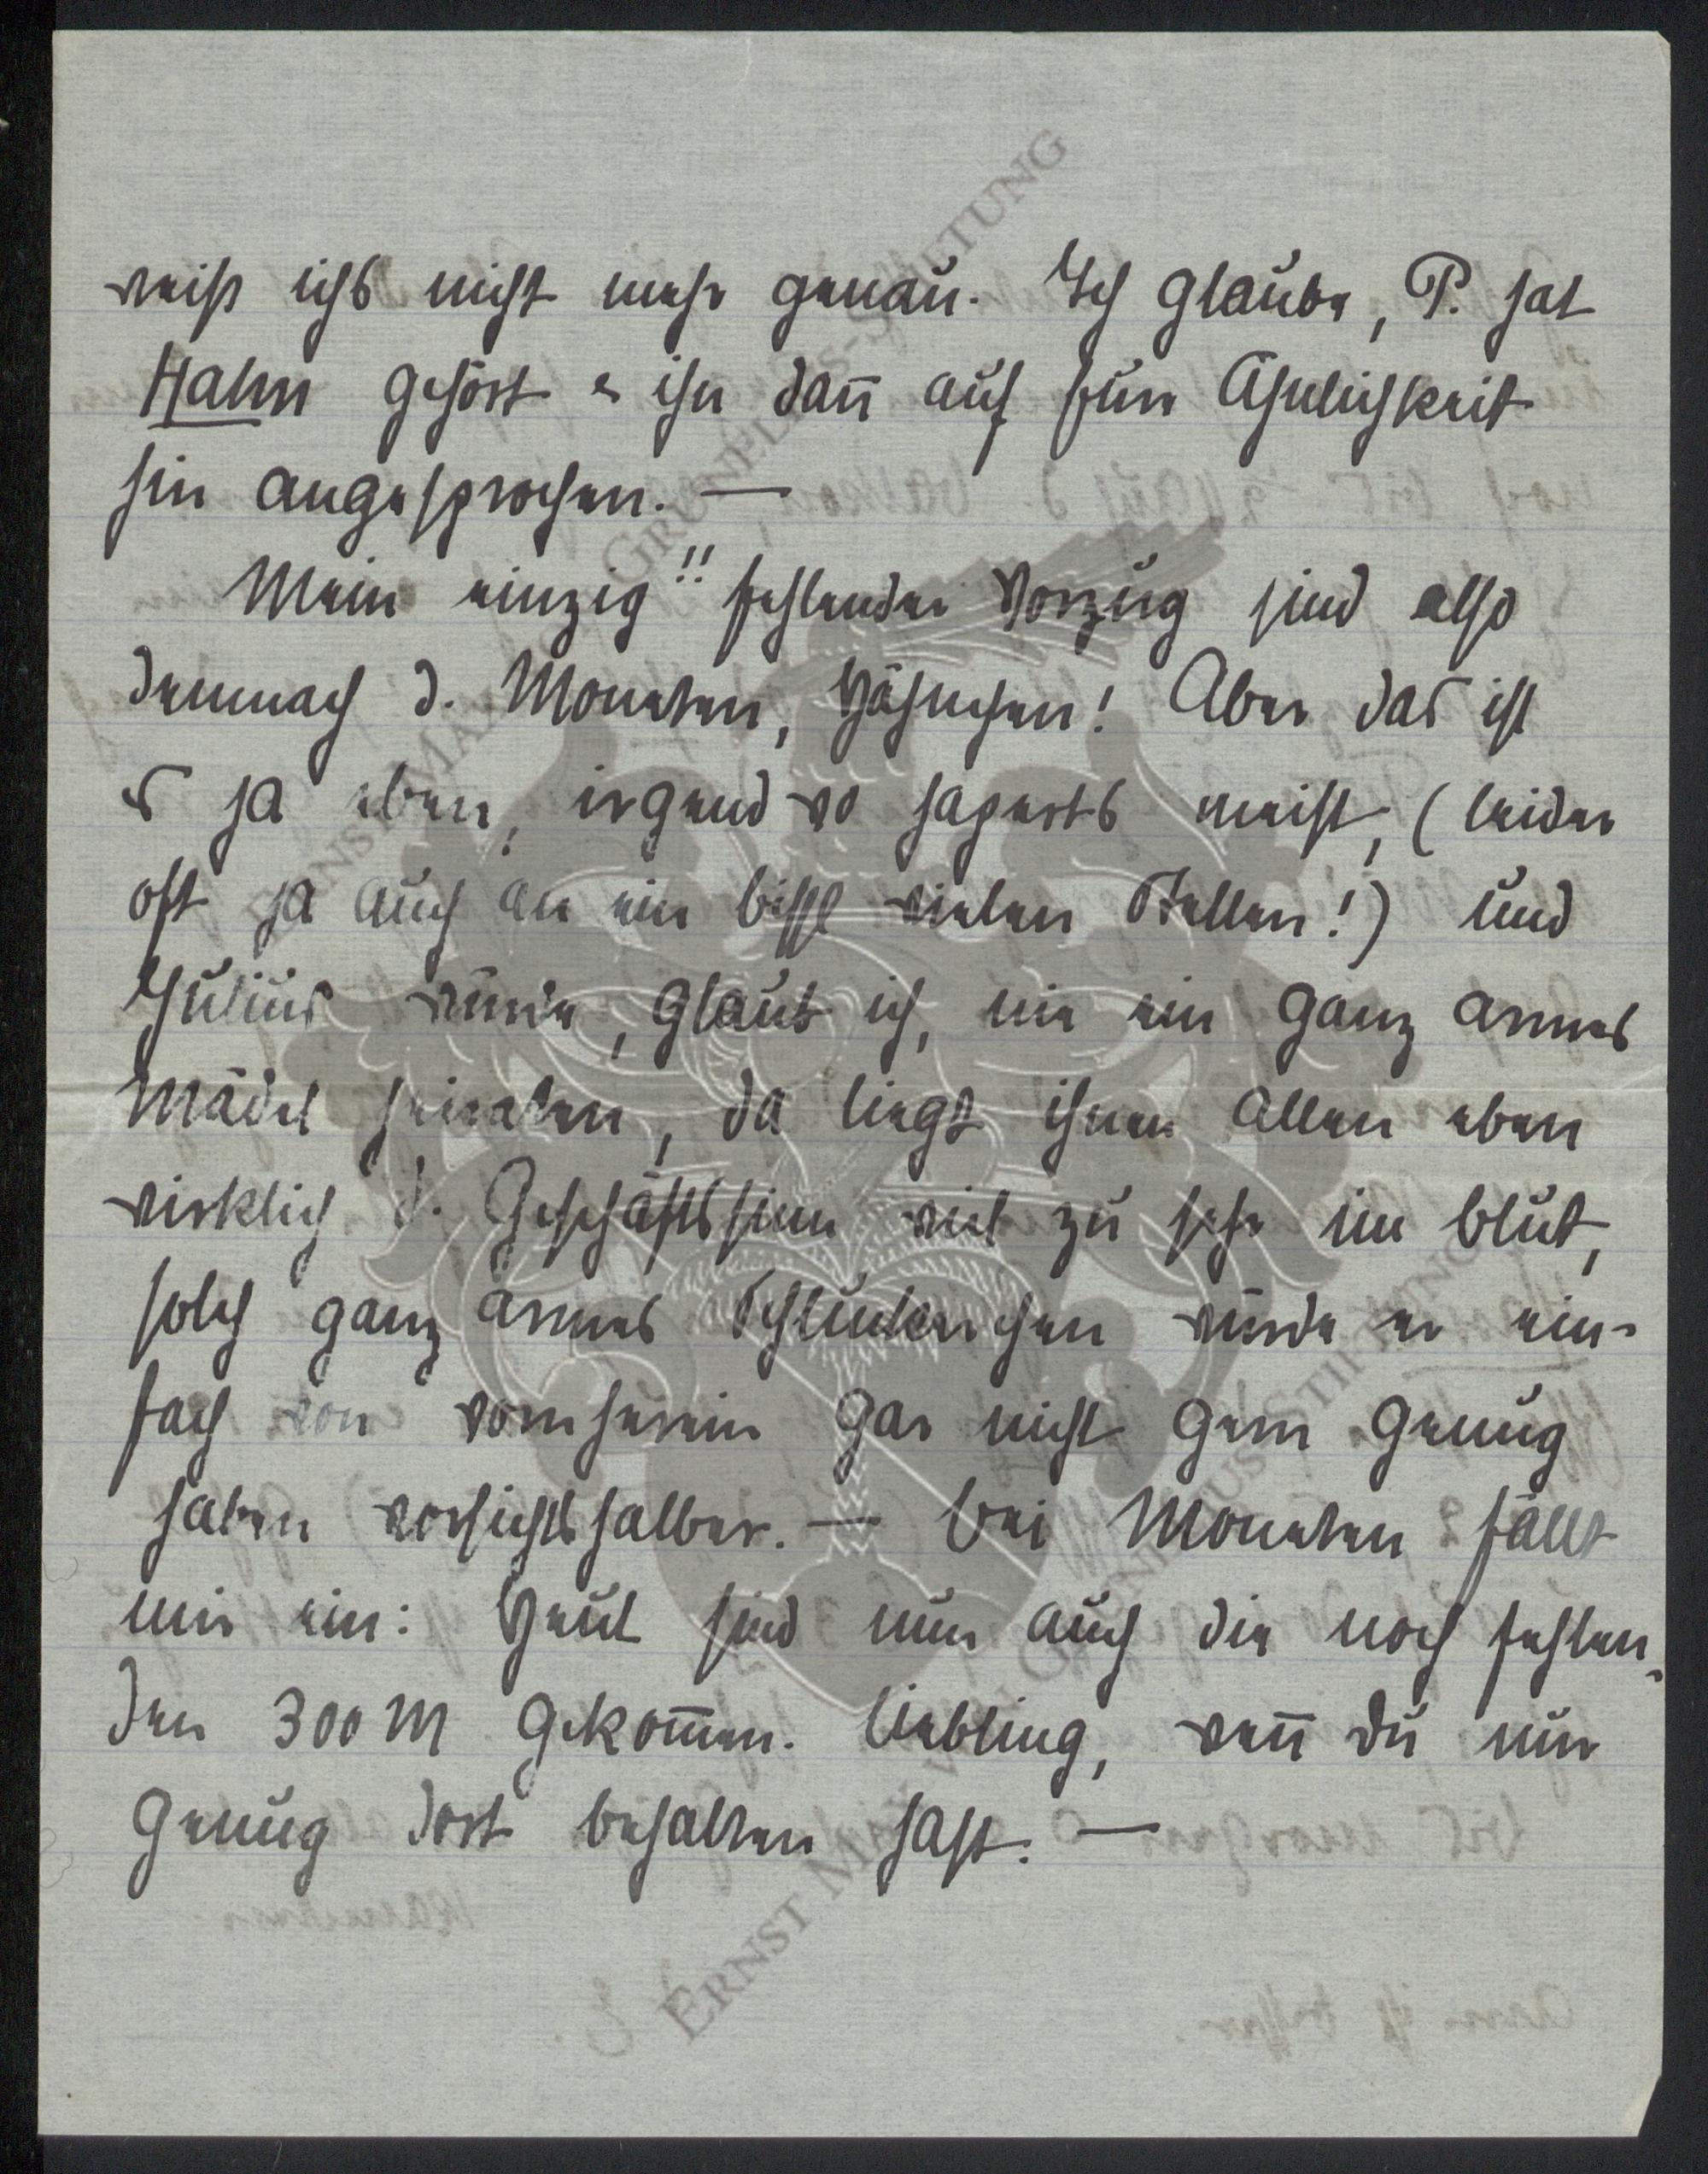 weiß ichs nicht mehr genau. Ich glaube, P. hat
Hahn gehört & ihn dan̄ auf Eure Ähnlichkeit
hin angesprochen. —
Mein einzig!! fehlender Vorzug sind also
demnach d. Moneten, Hähnchen! Aber das ist
es ja eben, irgend wo haperts meist, (leider
oft ja auch an ein bissl vielen Stellen!) und
Julius würde, glaub ich, nie ein ganz armes
Mädel heiraten, da liegt ihnen allen eben
wirklich d. Geschäftssinn viel zu sehr im Blut,
solch ganz armes Schluckerchen würde er ein-
fach von vornherein gar nicht gern genug
haben vorsichtshalber. — Bei Moneten fällt
mir ein: Heut sind nun auch die noch fehlen-
den 300 M gekom̄en. Liebling, wen̄ Du nur
genug dort behalten hast. —
ERNST MAX VON GRUNELIUS-STIFTUNG
ERNST MAX VON GRUNELIUS-STIFTUNG